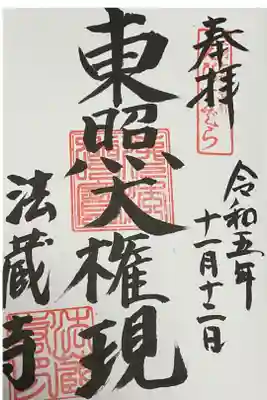 奉拝
令和五年
十一月十二日
東照大権現
法蔵寺